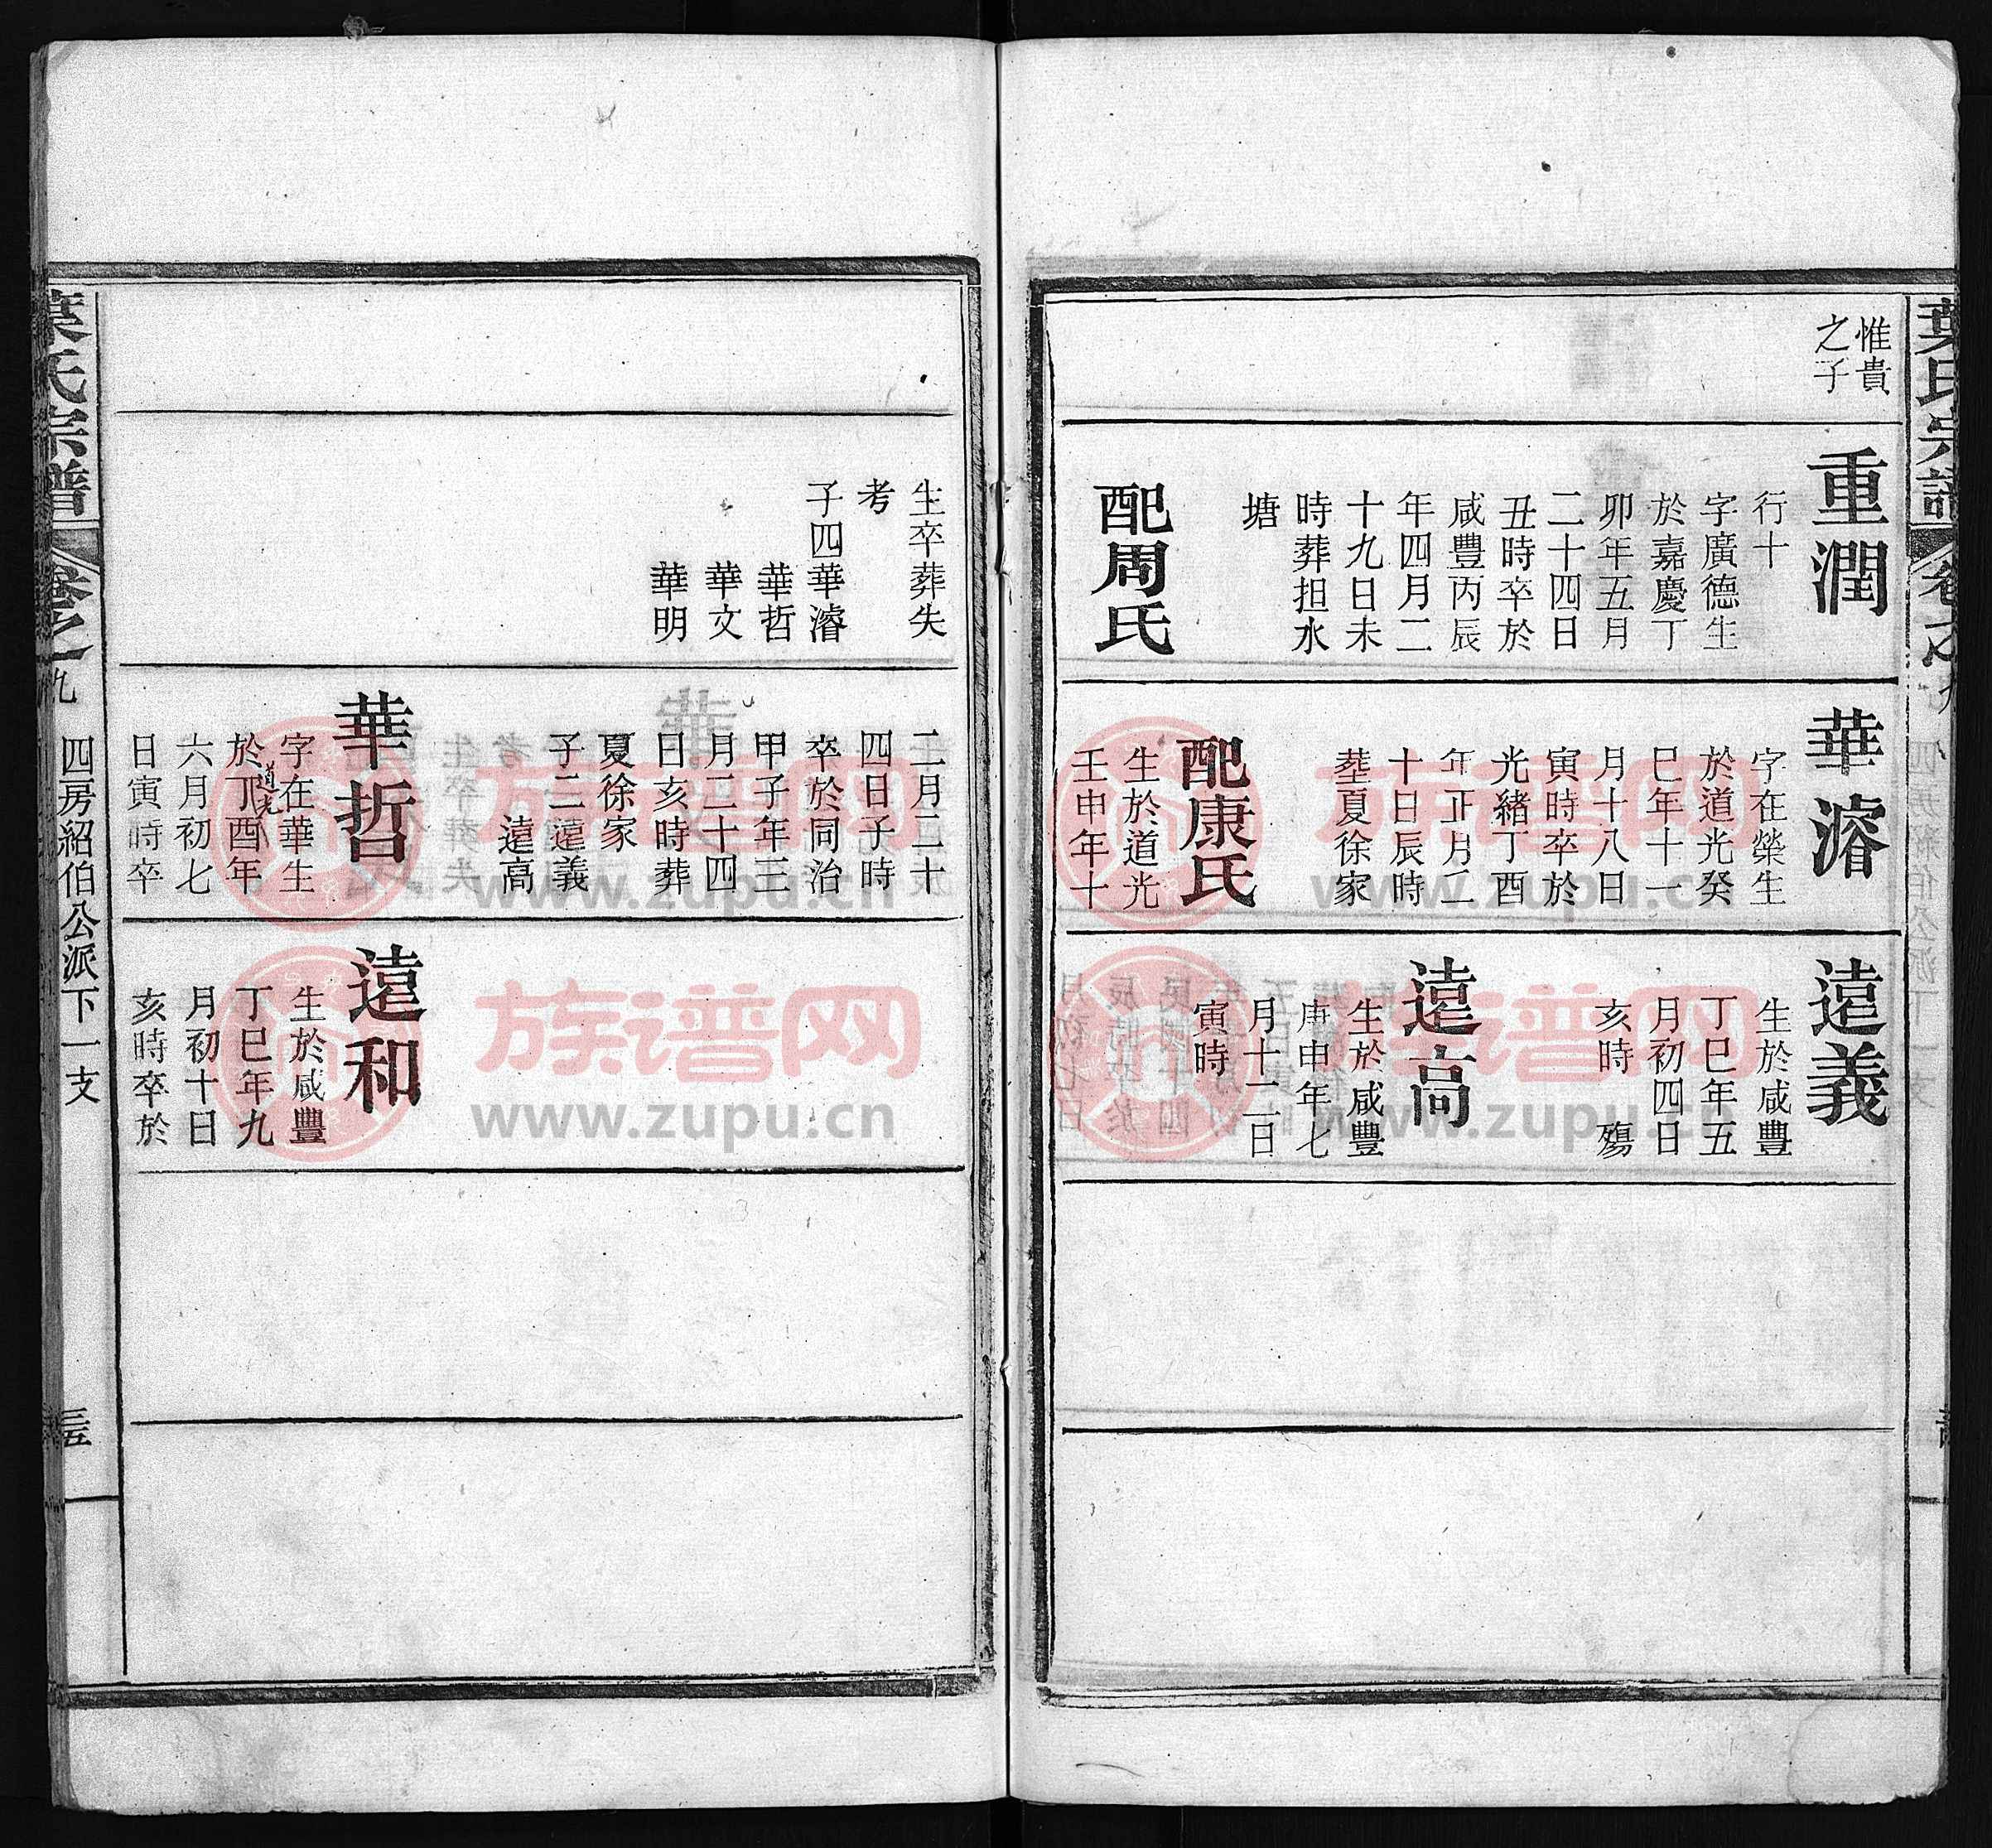 葉氏宗譜
卷之九
惟貴
之子
重潤
行十
字廣德生
於嘉慶丁
卯年五月
二十四日
丑時卒於
咸豐丙辰
年四月二
十九日未
時葬担水
塘
配周氏
華濬
字在榮生
於道光癸
巳年十一
月十八日
寅時卒於
光緒丁酉
年正月二
十日辰時
塟夏徐家
配康氏
生於道光
壬申年十
遠義
生於咸豐
丁巳年五
月初四日
亥時 殤
遠高
生於咸豐
庚申年七
月十二日
寅時
生卒葬失
考
子四華濬
華哲
華文
華明
二月二十
四日子時
卒於同治
甲子年三
月二十四
日亥時葬
夏徐家
子二遠義
遠高
華哲
字在華生
道光
於丁酉年
六月初七
日寅時卒
遠和
生於咸豐
丁巳年九
月初十日
亥時卒於
葉氏宗譜
卷之九
四房紹伯公派下一支
三五
族谱网
www.zupu.cn
族谱网
www.zupu.cn
族谱网
www.zupu.cn
族谱网
www.zupu.cn